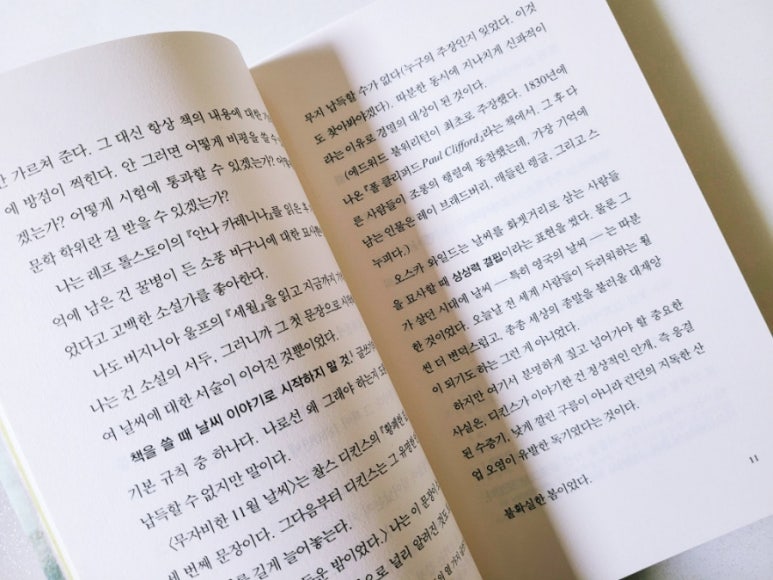 가르쳐 준다. 그 대신 항상 책의 내용에 대한
에 방점이 찍힌다. 안 그러면 어떻게 비평을 쓸 수
겠는가? 어떻게 시험에 통과할 수 있겠는가?
문학 학위란 걸 받을 수 있겠는가?
나는 레프 톨스토이의 『안나 카레니나』를 읽은 후
억에 남은 건 꿀병이 든 소풍 바구니에 대한 묘사뿐
었다고 고백한 소설가를 좋아한다.
나도 버지니아 울프의 『세월』을 읽고 지금까지
나는 건 소설의 서두, 그러니까 그 첫 문장으로
여 날씨에 대한 서술이 이어진 것뿐이었다.
책을 쓸 때 날씨 이야기로 시작하지 말 것!
기본 규칙 중 하나다. 나로선 왜 그래야 하는지
납득할 수 없지만 말이다.
〈무자비한 11월 날씨〉는 찰스 디킨스의
세 번째 문장이다. 그다음부터 디킨스는 그 유명한
를 길게 늘어놓는다.
밤이었다.〉 나는 이 문장이
으로 널리 알려진 것도
무지 납득할 수가 없다(누구의 주장인지 잊었다. 이것
도 찾아봐야겠다). 따분한 동시에 지나치게 신파적이
라는 이유로 경멸의 대상이 된 것이다.
(에드워드 불워리턴이 최초로 주장했다. 1830년에
나온 『폴 클리퍼드Paul Clifford』라는 책에서. 그 후 다
른 사람들이 조롱의 행렬에 동참했는데, 가장 기억에
남는 인물은 레이 브래드버리, 매들린 렝글, 그리고 스
누피다.)
오스카 와일드는 날씨를 화젯거리로 삼는 사람들
을 묘사할 때 상상력 결핍이라는 표현을 썼다. 물론 그
가 살던 시대에 날씨 — 특히 영국의 날씨 — 는 따분
한 것이었다. 오늘날 전 세계 사람들이 두려워하는 훨
씬 더 변덕스럽고, 종종 세상의 종말을 불러올 대재앙
이 되기도 하는 그런 게 아니었다.
하지만 여기서 분명하게 짚고 넘어가야 할 중요한
사실은, 디킨스가 이야기한 건 정상적인 안개, 즉 응결
된 수증기, 낮게 깔린 구름이 아니라 런던의 지독한 산
업 오염이 유발한 독기였다는 것이다.
불확실한 봄이었다.
11